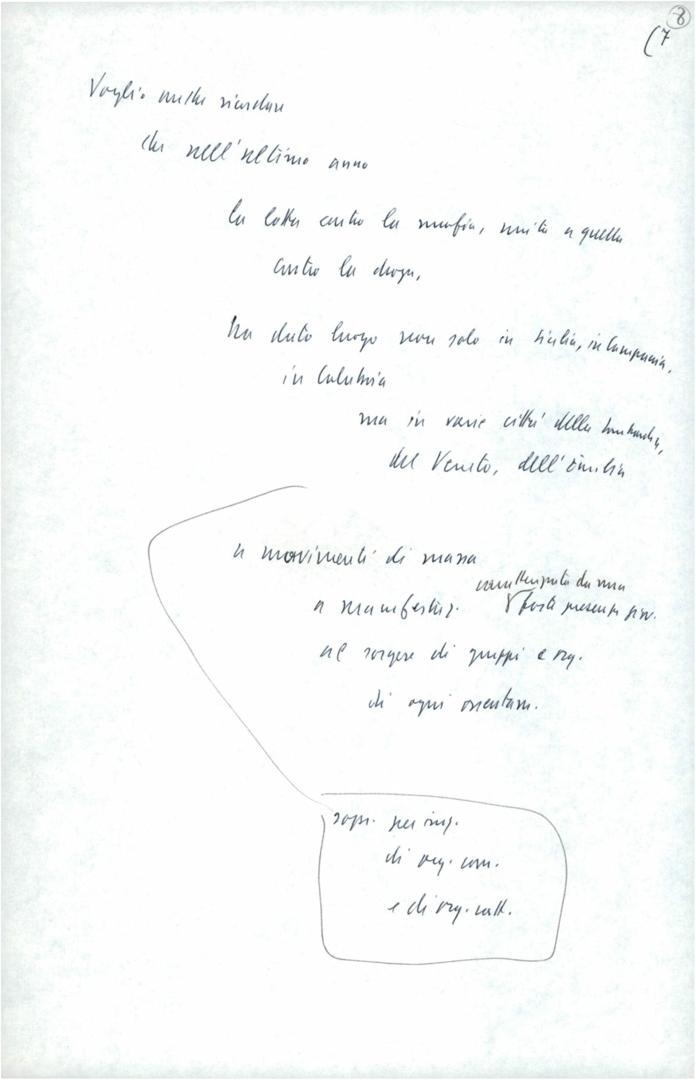 8
(7
Voglio anche ricordare
che nell'ultimo anno
la lotta contro la mafia, unita a quella
contro la droga,
ha dato luogo non solo in Sicilia, in Campania,
in Calabria
ma in varie città della Lombardia,
del Veneto, dell'Emilia
a movimenti di massa
caratterizzata da una
a manifestaz. forte presenza giov.
al sorgere di gruppi e org.
di ogni orientam.
sopr. per iniz.
di org. com.
e di org. catt.